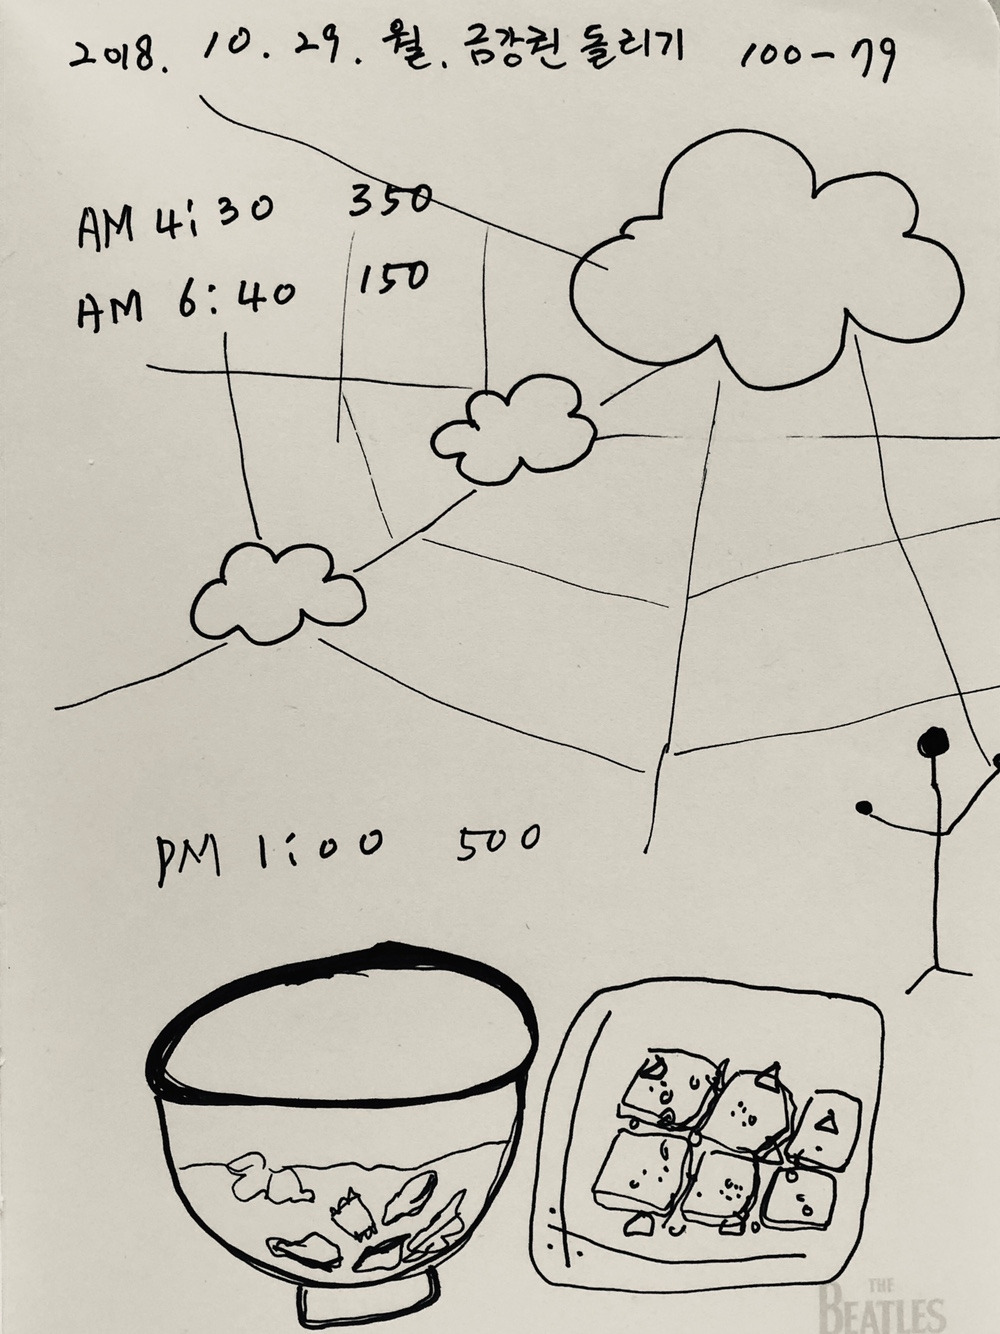 2018. 10. 29. 월. 금강권 돌리기 100-79
AM 4:30 350
AM 6:40 150
PM 1:00 500
THE
BEATLES